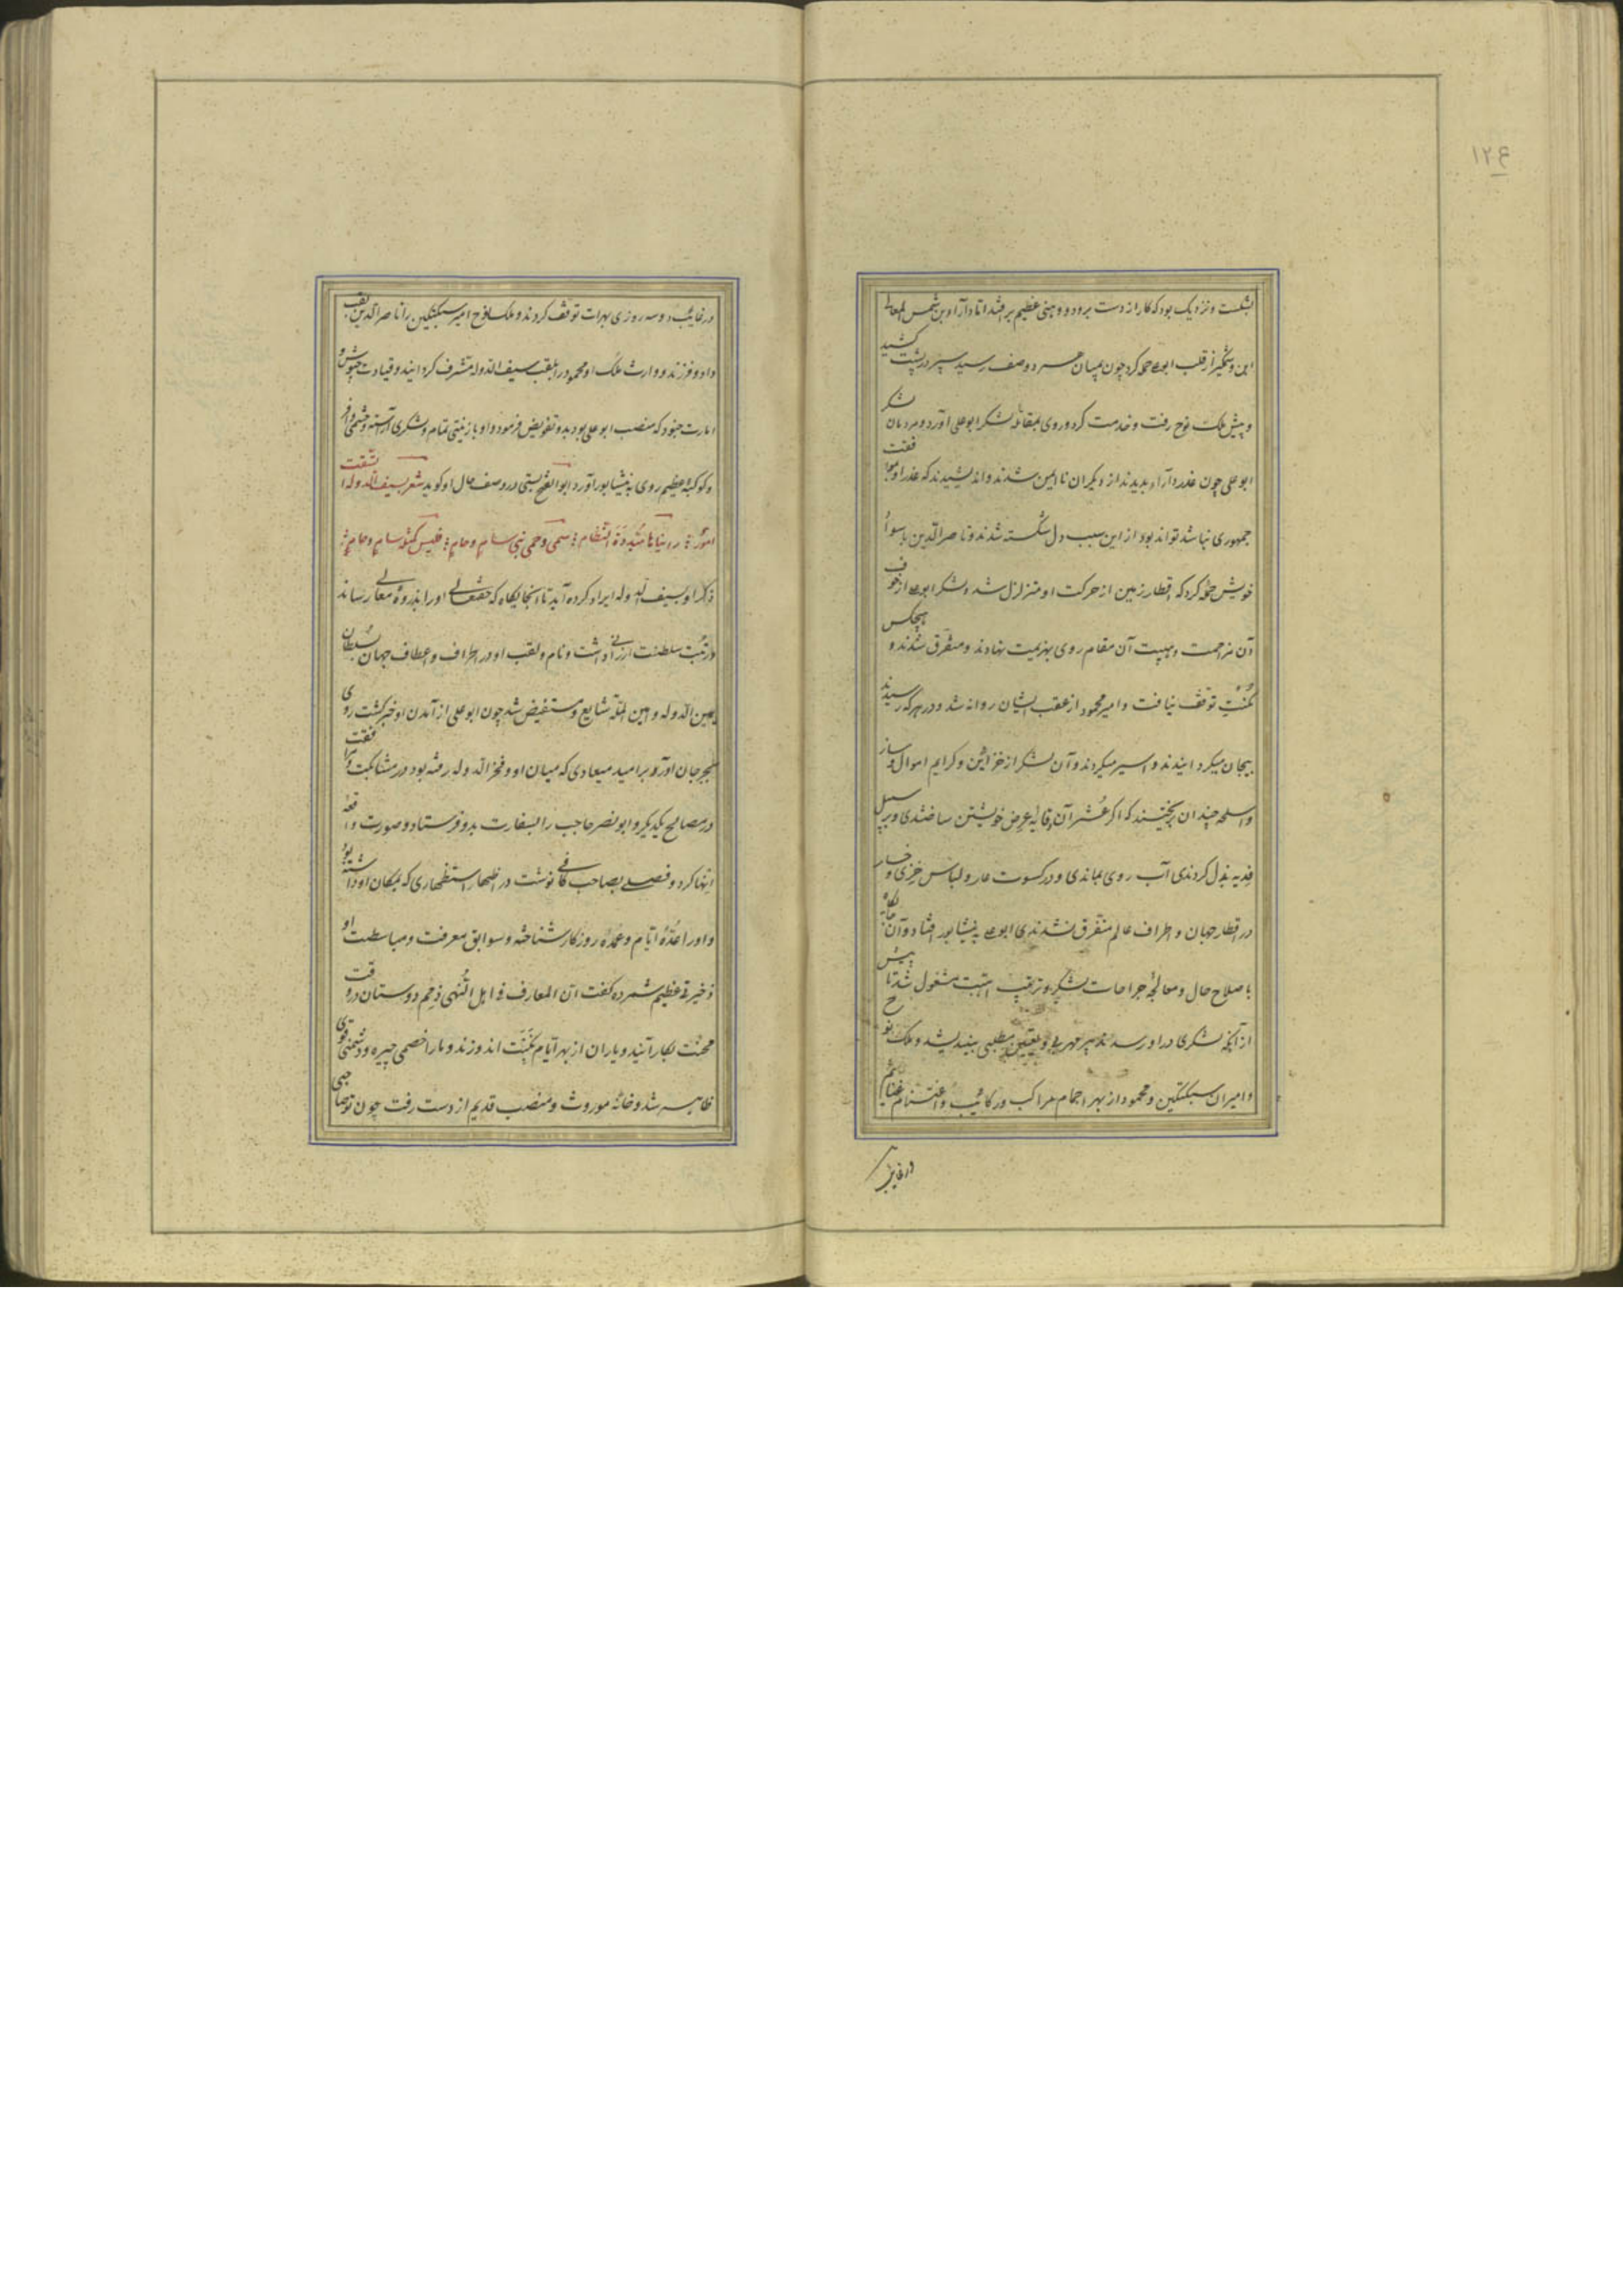 ١٢٤
بشکست و نزدیک بود که کار از دست برود و وهنی عظیم برافتد اتا دارا بن شمس المعالی
ابن وشمگیر از قلب ابوعلی حمله کرد چون بمیان هر دو صف رسید سپر در پشت کشید
و پیش ملک نوح رفت و خدمت کرد و روی بمقابله لشکر ابوعلی آورد و مردمان لشکر
ابو علی چون غدر دارا بدیدند از دیگران ناایمن شدند و اندیشیدند که غدر او بی موافقت
جمهوری نباشد تواند بود از این سبب دل شکسته شدند و ناصر الدین با سواد
خویش حمله کرد که اقطار زمین از حرکت او متزلزل شد و لشکر ابوعلی از خوف
آن مزاحمت و هیبت آن مقام روی بهزیمت نهادند و متفرق شدند و هیچکس
مکنت توقف نیافت و امیر محمود از عقب ایشان روانه شد و در هر که رسیدند
بیجان میکردانیدند و اسیر میکردند و آن لشکر از خزاین و کرایم اموال و ساز
و اسلحه چندان بریختند که اکر عشر آن وقایه عرض خویشتن ساختندی و بر سبیل
فدیه بذل کردندی آب روی بماندی و در کسوت عار و لباس خزی و خسار
در اقطار جهان و اطراف عالم متفرق نشدندی ابوعلی به نیشابور افتاد و آن جایگاه
باصلاح حال و معالجه جراحات لشکر و ترتیب اهبت مشغول شد تا پیش
از آنکه لشکری در او رسد تدبیر مهربی و تعیین مطلبی بیندیشد و ملک نوح
و امیران سبکتکین و محمود از بهر اجمام مراکب و رکائب و اغتنام غنایم
و رغایب
و رغایب دو سه روزی بهرات توقف کردند و ملک نوح امیر سبکتکین را ناصر الدین لقب
داد و فرزند و وارث ملک او محمود را بلقب سیف الدوله مشرف کردانید و قیادت جیوش و
امارت جنود که منصب ابو علی بود بدو تفویض فرمود و او با زینتی تمام و لشکری آراسته و حشمی وافر
و کوکبه عظیم روی به نیشابور آورد ابوالفتح بستی در وصف حال او کوید شعر بسیف الدوله اتسقت
امور رایناها مبددة النظام سمی و حمی بنی سام و حام فلیس کمثله سام و حام
ذکر او بسیف الدوله ایراد کرده آید تا آنجایگاه که حقتعالی او را بذروهٔ معالی رساند
و رتبت سلطنت ارزانی داشت و نام و لقب او در اطراف و اعطاف جهان بسلطان
یمین الدوله و امین المله شایع و مستفیض شد چون ابو علی از آمدن او خبر کشت روی
بجرجان آورد بر امید میعادی که میان او و فخر الدوله رفته بود در مشابکت و مرافقت
در مصالح یکدیکر و ابو نصر حاجب را بسفارت بدو فرستاد و صورت واقعه
انها کرد و فصلی بصاحب کافی نوشت در اظهار استظهاری که بمکان او داشته بود
و او را عُدّهٔ ایام و عمدهٔ روزکار شناخته و سوابق معرفت و مباسطت او
ذخیرتی عظیم شمرده کفت ان المعارف فی اهل النهی ذمم دوستان در وقت
محنت بکار آیند و یاران از بهر ایام نکبت اندوزند و مارا خصمی چیره و دشمنی قوی
ظاهر شد و خانه موروث و منصب قدیم از دست رفت چون تو صاحبی